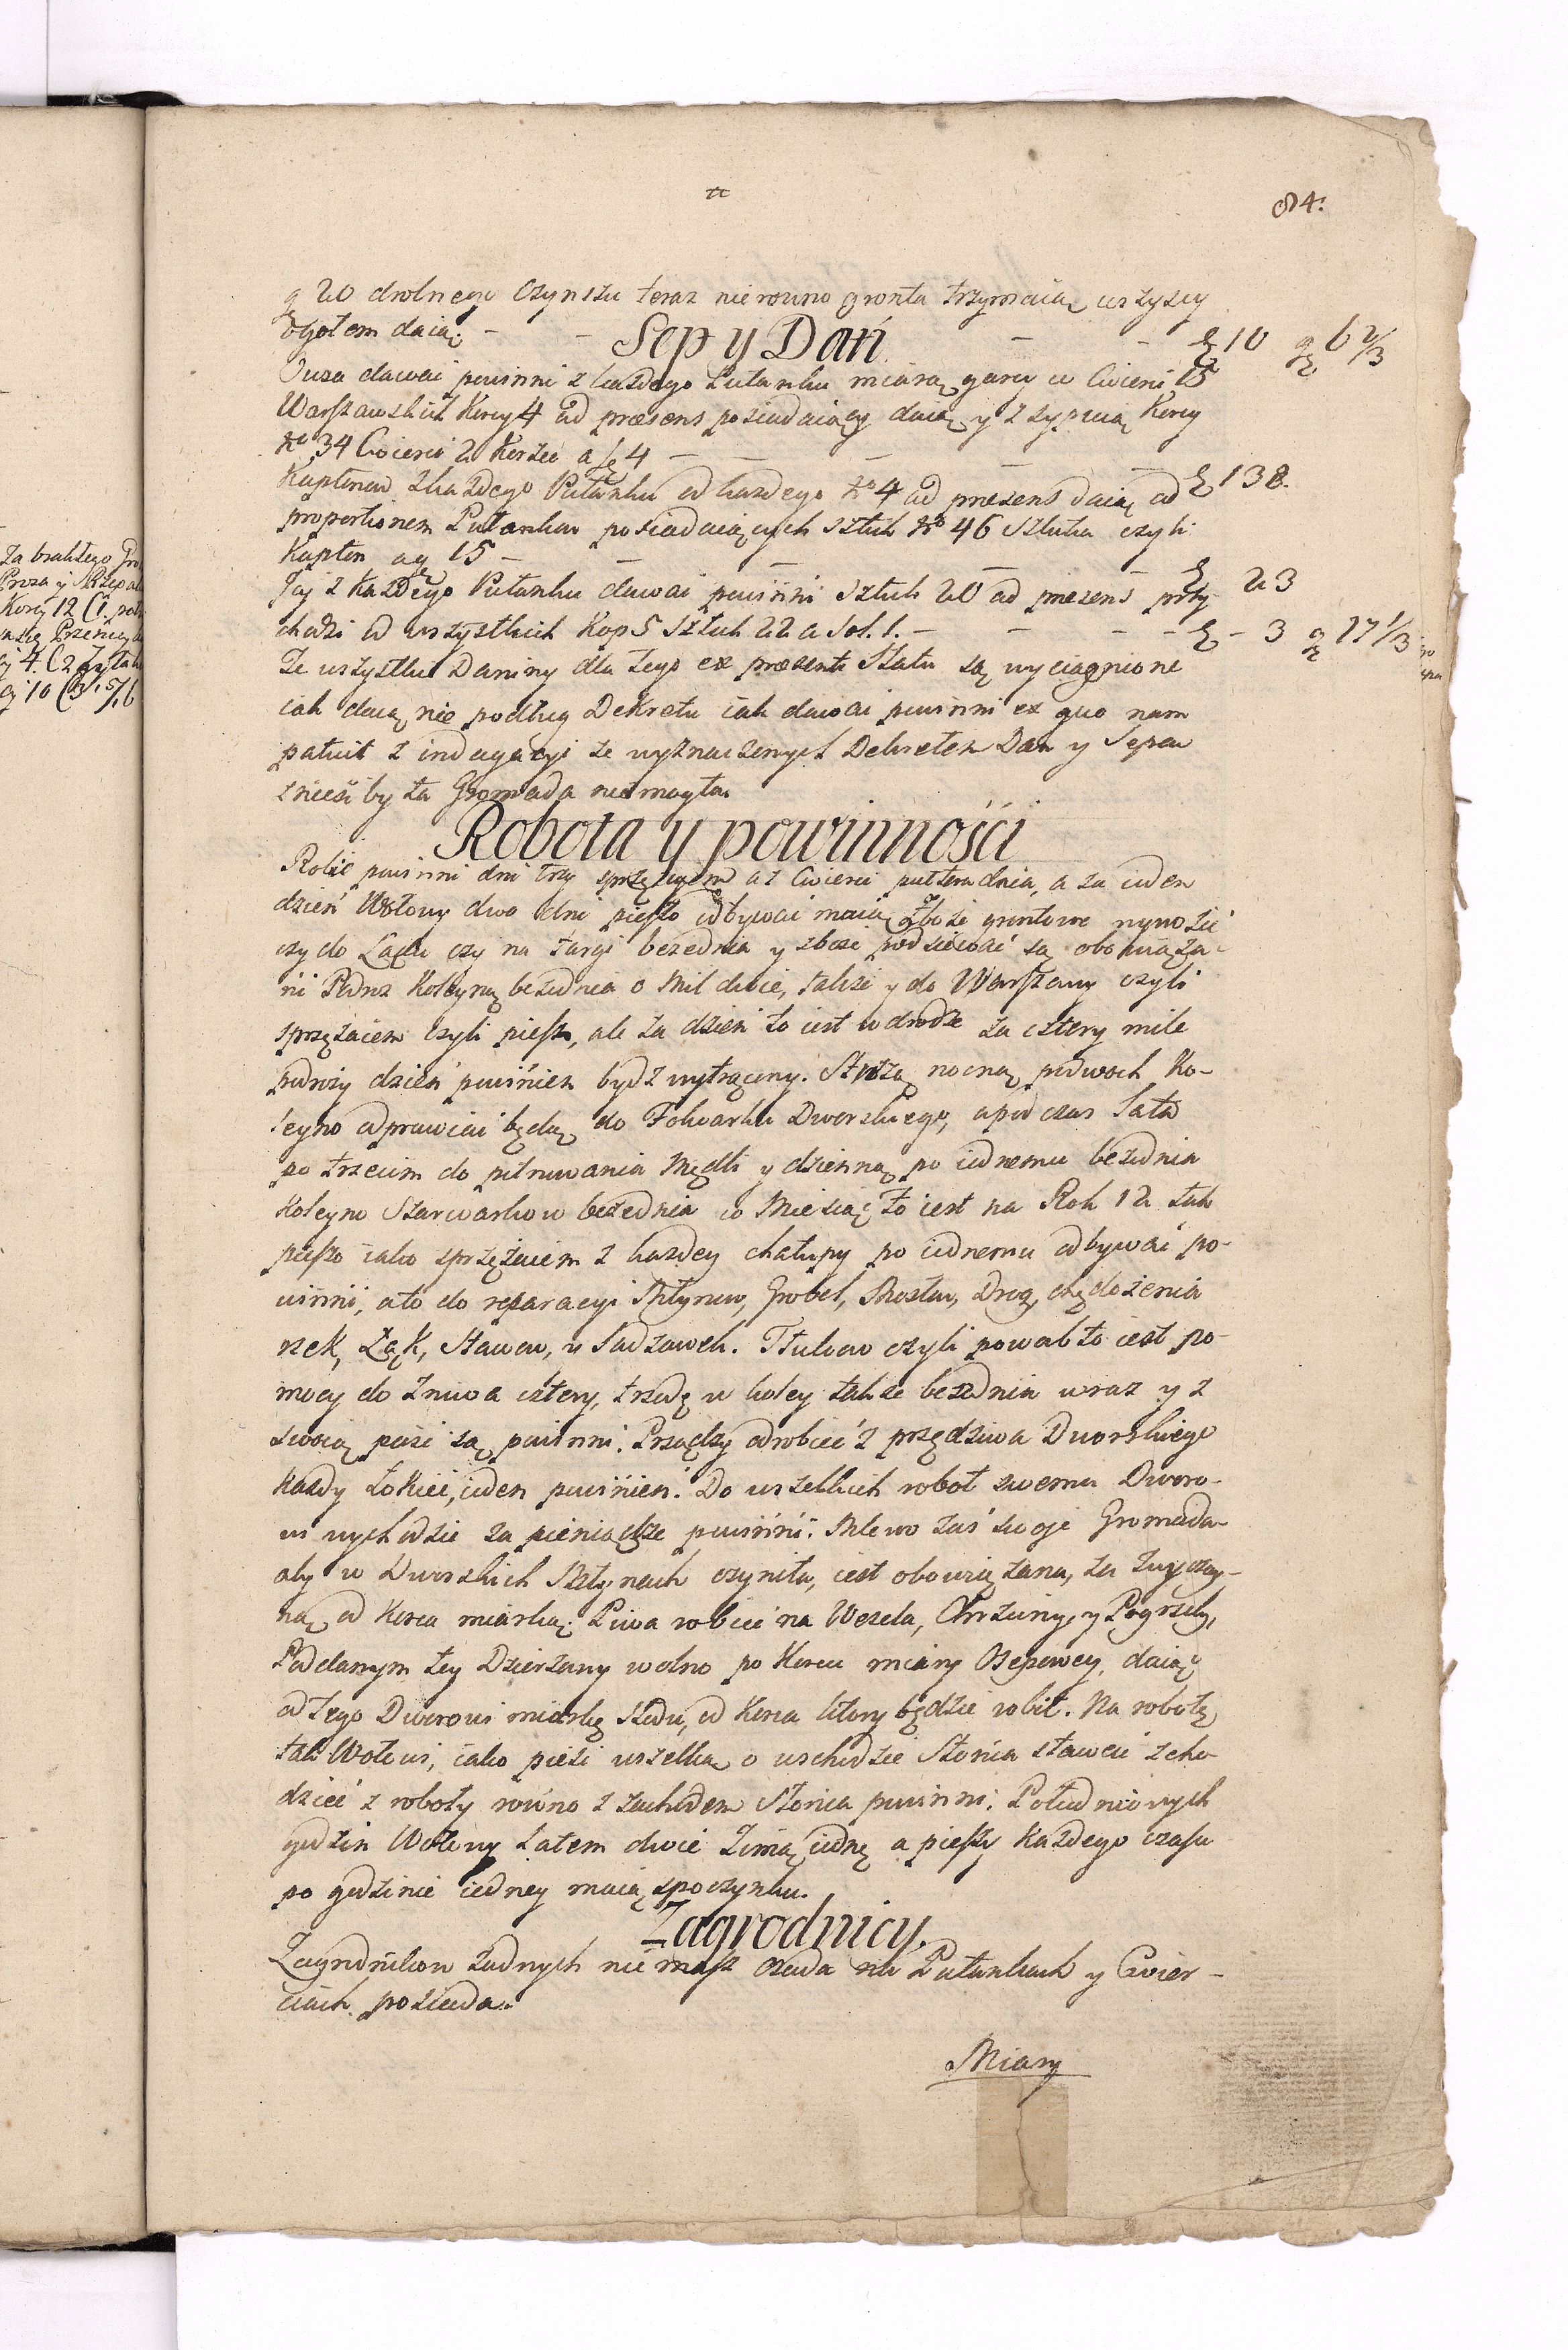 84.
g 20 drobnego Czynszu teraz nierowno gronta trzymaią wszyscy
ogołem daią — — — — 10 g 6 2/3
Sep y Dań
Owsa dawać powinni z każdego Pułanku miarą garcy w Cwierci 15
Warszawskich Korcy 4 ad præsens posiadaiący daią y zsypuią Korcy
No 34 Cwierci 2 Korzec a 4 — — — — — 138.
Kapłonow z każdego Pułanku od każdego No 4 ad præsens daią ad
proportionem Pułankow posiadaiących sztuk No 46 Sztuka czyli
Kapłon a g 15 — — — — 23
Jay z każdego Pułanku dawać powinni Sztuk 20 ad præsens przy-
chodzi od wszystkich Kop 5 Sztuk 22 a Sol. 1. — — — — 3 g 17 1/3
Te wszystkie Daniny dla tego ex præsenti Statu są wyciągnione
iak daią nie podług Dekretu iak dawać powinni ex quo nam
patuit z indagacyi że wyznaczonych Dekretem Dan y Sepow
znieść by ta Gromada nie mogła.
Robota y powinności
Robić powinni dni trzy sprzężaiem a z Cwierci pułtora dnia, a za ieden
dzień Wołowy dwa dni pieszo odbywać maią Zboże gruntowe wywozić
czy do Lądu czy na targi bezednia y zboże podsiewać są obowiąza-
ni Podroż Koleyną bezednia o Mil dwie, także y do Warszawy czyli
sprzężaiem czyli pieszo, ale za dzień to iest w drodze za cztery mile
podroży dzień powinien bydź wytrącony. Strożą nocną po dwoch Ko-
leyno odprawiać będą do Folwarku Dworskiego, a podczas Lata
po trzecim do pilnowania Mędli y dzienną po iednemu bezednia
Koleyno Szarwarkow bezednia co Miesiąc to iest na Rok 12 tak
pieszo iako sprzężaiem z każdey chałupy po iednemu odbywać po-
winni, a to do reparacyi Młynow, Grobel, Mostow, Drog, chędożenia
rzek, Łąk, Stawow, y Sadzawek. Tłukow czyli powab to iest po-
mocy do żniwa cztery, trzodę w koley także bezednia wraz y z
swoią paść są powinni. Prządzy odrobić z przędziwa Dworskiego
Każdy Łokieć ieden powinien. Do wszelkich robot swemu Dworo-
wi wychodzić za pieniądze powinni. Mlewo zaś swoje Gromada
aby w Dworskich Młynach czyniła, iest obowiązana, za zwyczay-
ną od Korca miarką. Piwa robić na Wesela, Chrzciny, y Pogrzeby,
Poddanym tey Dzierżawy wolno po Korcu miary Osepowey, daiąc
od tego Dworowi miarkę słodu, od Korca ktory będzie robił. Na robotę
tak Wołowi, iako piesi wszelką o wschodzie Słońca stawać zcho-
dzić z roboty rowno z zachodem Słońca powinni. Południowych
godzin Wołowy Latem dwie Zimą iednę a pieszy każdego czasu
po godzinie iedney maią spoczynku.
Zagrodnicy.
Zagrodnikow żadnych nie masz osada na Pułankach y Cwier-
ciach posiada.
Miary